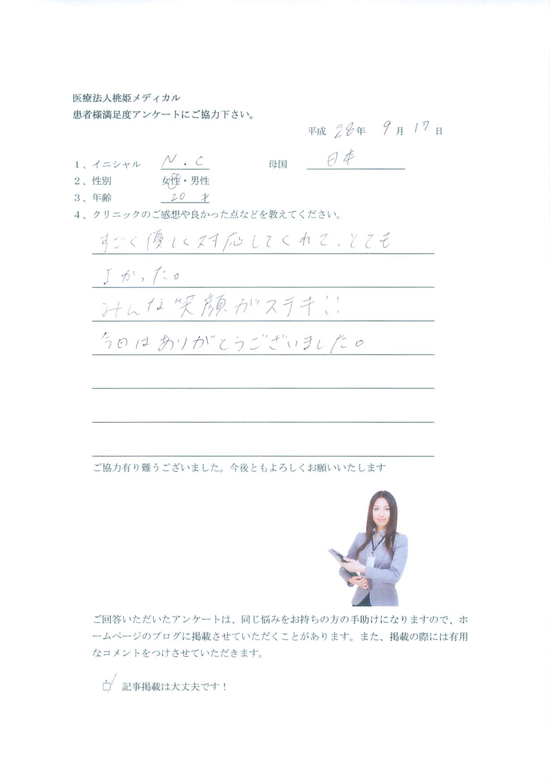 医療法人桃姫メディカル
患者様満足度アンケートにご協力下さい。
平成 28年 9月 17日
1、イニシャル N.C 母国 日本
2、性別 女性・男性
3、年齢 20才
4、クリニックのご感想や良かった点などを教えてください。
すごく優しく対応してくれて、とても
よかった。
みんな笑顔がステキ!!
今日はありがとうございました。
ご協力有り難うございました。今後ともよろしくお願いいたします
ご回答いただいたアンケートは、同じ悩みをお持ちの方の手助けになりますので、ホ
ームページのブログに掲載させていただくことがあります。また、掲載の際には有用
なコメントをつけさせていただきます。
記事掲載は大丈夫です！